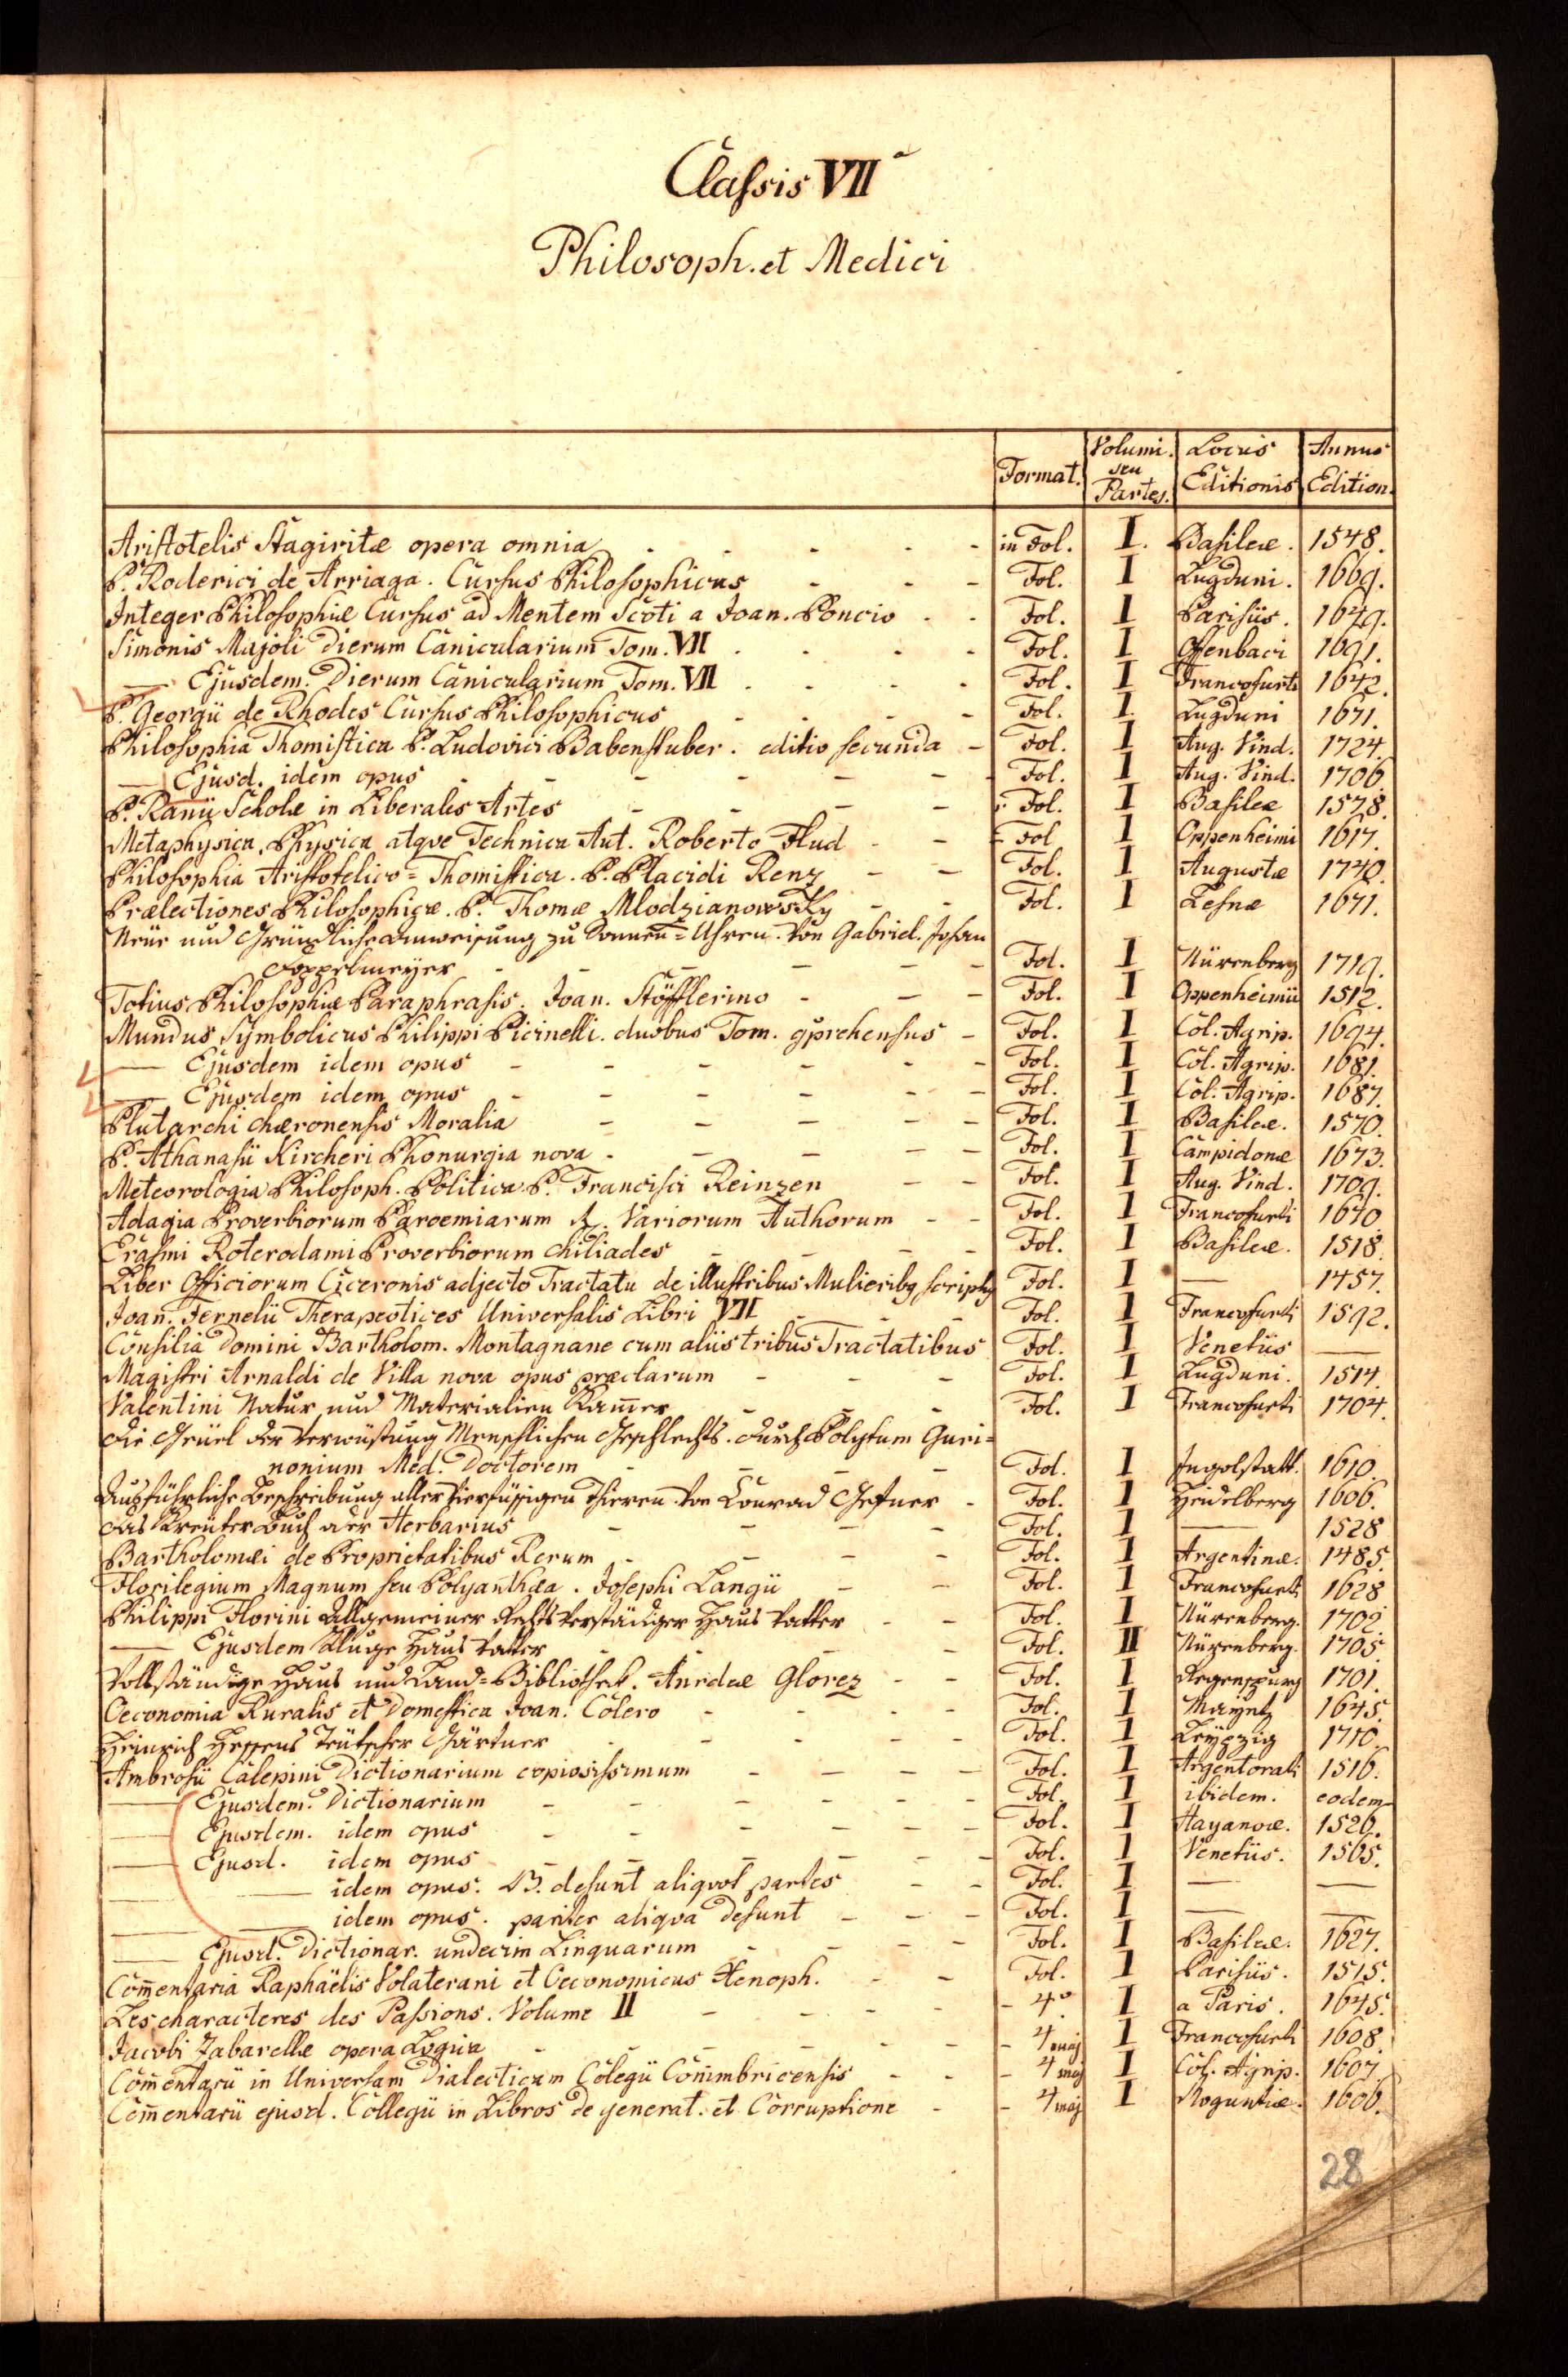 Classis VIIa
Philosoph. et Medici
Format. Volumi. seu Partes. Locus Editionis Annus Edition.
Aristotelis Stagiritæ opera omnia - in Fol. I. Basileæ. 1548.
P. Roderici de Arriaga. Cursus Philosophicus - Fol. I Lugduni. 1669.
Integer Philosophiæ Cursus ad Mentem Scoti a Joan. Poncio - Fol. I Parisiis. 1649.
Simonis Majoli Dierum Canicularium Tom. VII - Fol. I Offenbaci 1691.
— Ejusdem. Dierum Canicularium Tom. VII - Fol. I Francofurti 1642.
P. Georgii de Rhodes Cursus Philosophicus - Fol. I Lugduni 1671.
Philosophia Thomistica P. Ludovici Babenstuber. editio secunda - Fol. I Aug. Vind. 1724.
— Ejusd. idem opus - Fol. I Aug. Vind. 1706
P. Ramii Scholæ in Liberales Artes - Fol. I Basileæ 1578.
Metaphysica, Physica atqve Technica Aut. Roberto Flud - Fol I Oppenheimi 1617.
Philosophia Aristotelico=Thomistica. P. Placidi Renz - Fol. I Augustæ 1740.
Prælectiones Philosophicæ. P. Thomæ Mlodzianowsky - Fol. I Lesnæ 1671.
Neüe und Gründliche Anweisung zu Sonnen=Uhren. von Gabriel. Johan
Doppelmeyer - Fol. I Nürenberg 1719.
Totius Philosophiæ Paraphrasis. Joan. Stöfflerino - Fol. I Oppenheimii 1512.
Mundus Symbolicus Philippi Picinelli. duobus Tom. gprehensus - Fol. I Col. Agrip. 1694.
— Ejusdem idem opus - Fol. I Col. Agrip. 1681.
— Ejusdem idem opus - Fol. I Col. Agrip. 1687.
Plutarchi Chæronensis Moralia - Fol. I Basileæ. 1570.
P. Athanasii Kircheri Phonurgia nova - Fol. I Campidonæ 1673.
Meteorologia Philosoph. Politica P. Francisci Reinzen - Fol. I Aug. Vind. 1709.
Adagia Proverbiorum Paroemiarum Variorum Authorum - Fol. I Francofurti 1670
Erasmi Roterodami Proverbiorum Chiliades - Fol. I Basileæ. 1518.
Liber Officiorum Ciceronis adjecto Tractatu de illustribus Mulieribg Fol. I — 1457.
Joan. Fernelii Therapeotices Universalis Libri VII - Fol. I Francofurti 1592.
Consilia Domini Bartholom. Montagnane cum aliis tribus Tractatibus Fol. I Venetiis —
Magistri Arnaldi de Villa nova opus præclarum - Fol. I Lugduni. 1514.
Valentini Natur und Materialien Kam̃er - Fol. I Francofurti 1704.
Die Greüel der Verwüstung Menschlichen Geschlechts. durch Guari=
nonium Med. Doctorem - Fol. I Ingolstatt. 1610.
Ausführliche Beschreibung aller Vierfüssigen Thieren von Conrad Gesner - Fol. I Heidelberg 1606.
Das Kreüter Buch oder Herbarius - Fol. I — 1528
Bartholomæi de Proprietatibus Rerum - Fol. I Argentinæ. 1485.
Florilegium Magnum seu Polyanthæa. Josephi Langii - Fol. I Francofurti 1628
Philippi Florini Allgemeiner Rechtsverständiger Haus Vatter - Fol. I Nürenberg. 1702
— Ejusdem Kluger Haus Vatter - Fol. II Nürenberg. 1705
Vollständige Haus und Land=Bibliothek. Glorez - Fol. I Regenspurg 1701.
Oeconomia Ruralis et Domestica Joan. Colero - Fol. I Mayntz 1645.
Heinrich Hessens Teütscher Gärtner - Fol. I Leypzig 1710.
Ambrosii Calepini Dictionarium copiosissimum - Fol. I Argentorati 1516.
— Ejusdem. Dictionarium - Fol. I ibidem. eodem
— Ejusdem. idem opus - Fol. I Hayanoæ. 1526.
— Ejusd. idem opus - Fol. I Venetiis. 1565.
— idem opus. NB. desunt aliqvot partes - Fol. I — —
— idem opus. pariter aliqva desunt - Fol. I — —
— Ejusd. Dictionar. undecim Linguarum - Fol. I Basileæ. 1627.
Com̃entaria Raphäelis Volaterani et Oeconomicus Xenoph. - Fol. I Parisiis. 1515.
Les characteres des Passions. Volume II - 4o. I a Paris. 1645.
Jacobi Zabarellæ opera Logica - 4 maj I Francofurti 1608.
Com̃entarii in Universam Dialecticam Colegii Conimbricensis - 4 maj I Col. Agrip. 1607.
Com̃entarii ejusd. Collegii in Libros de generat. et Corruptione - 4 maj I Moguntiæ. 1606.
28